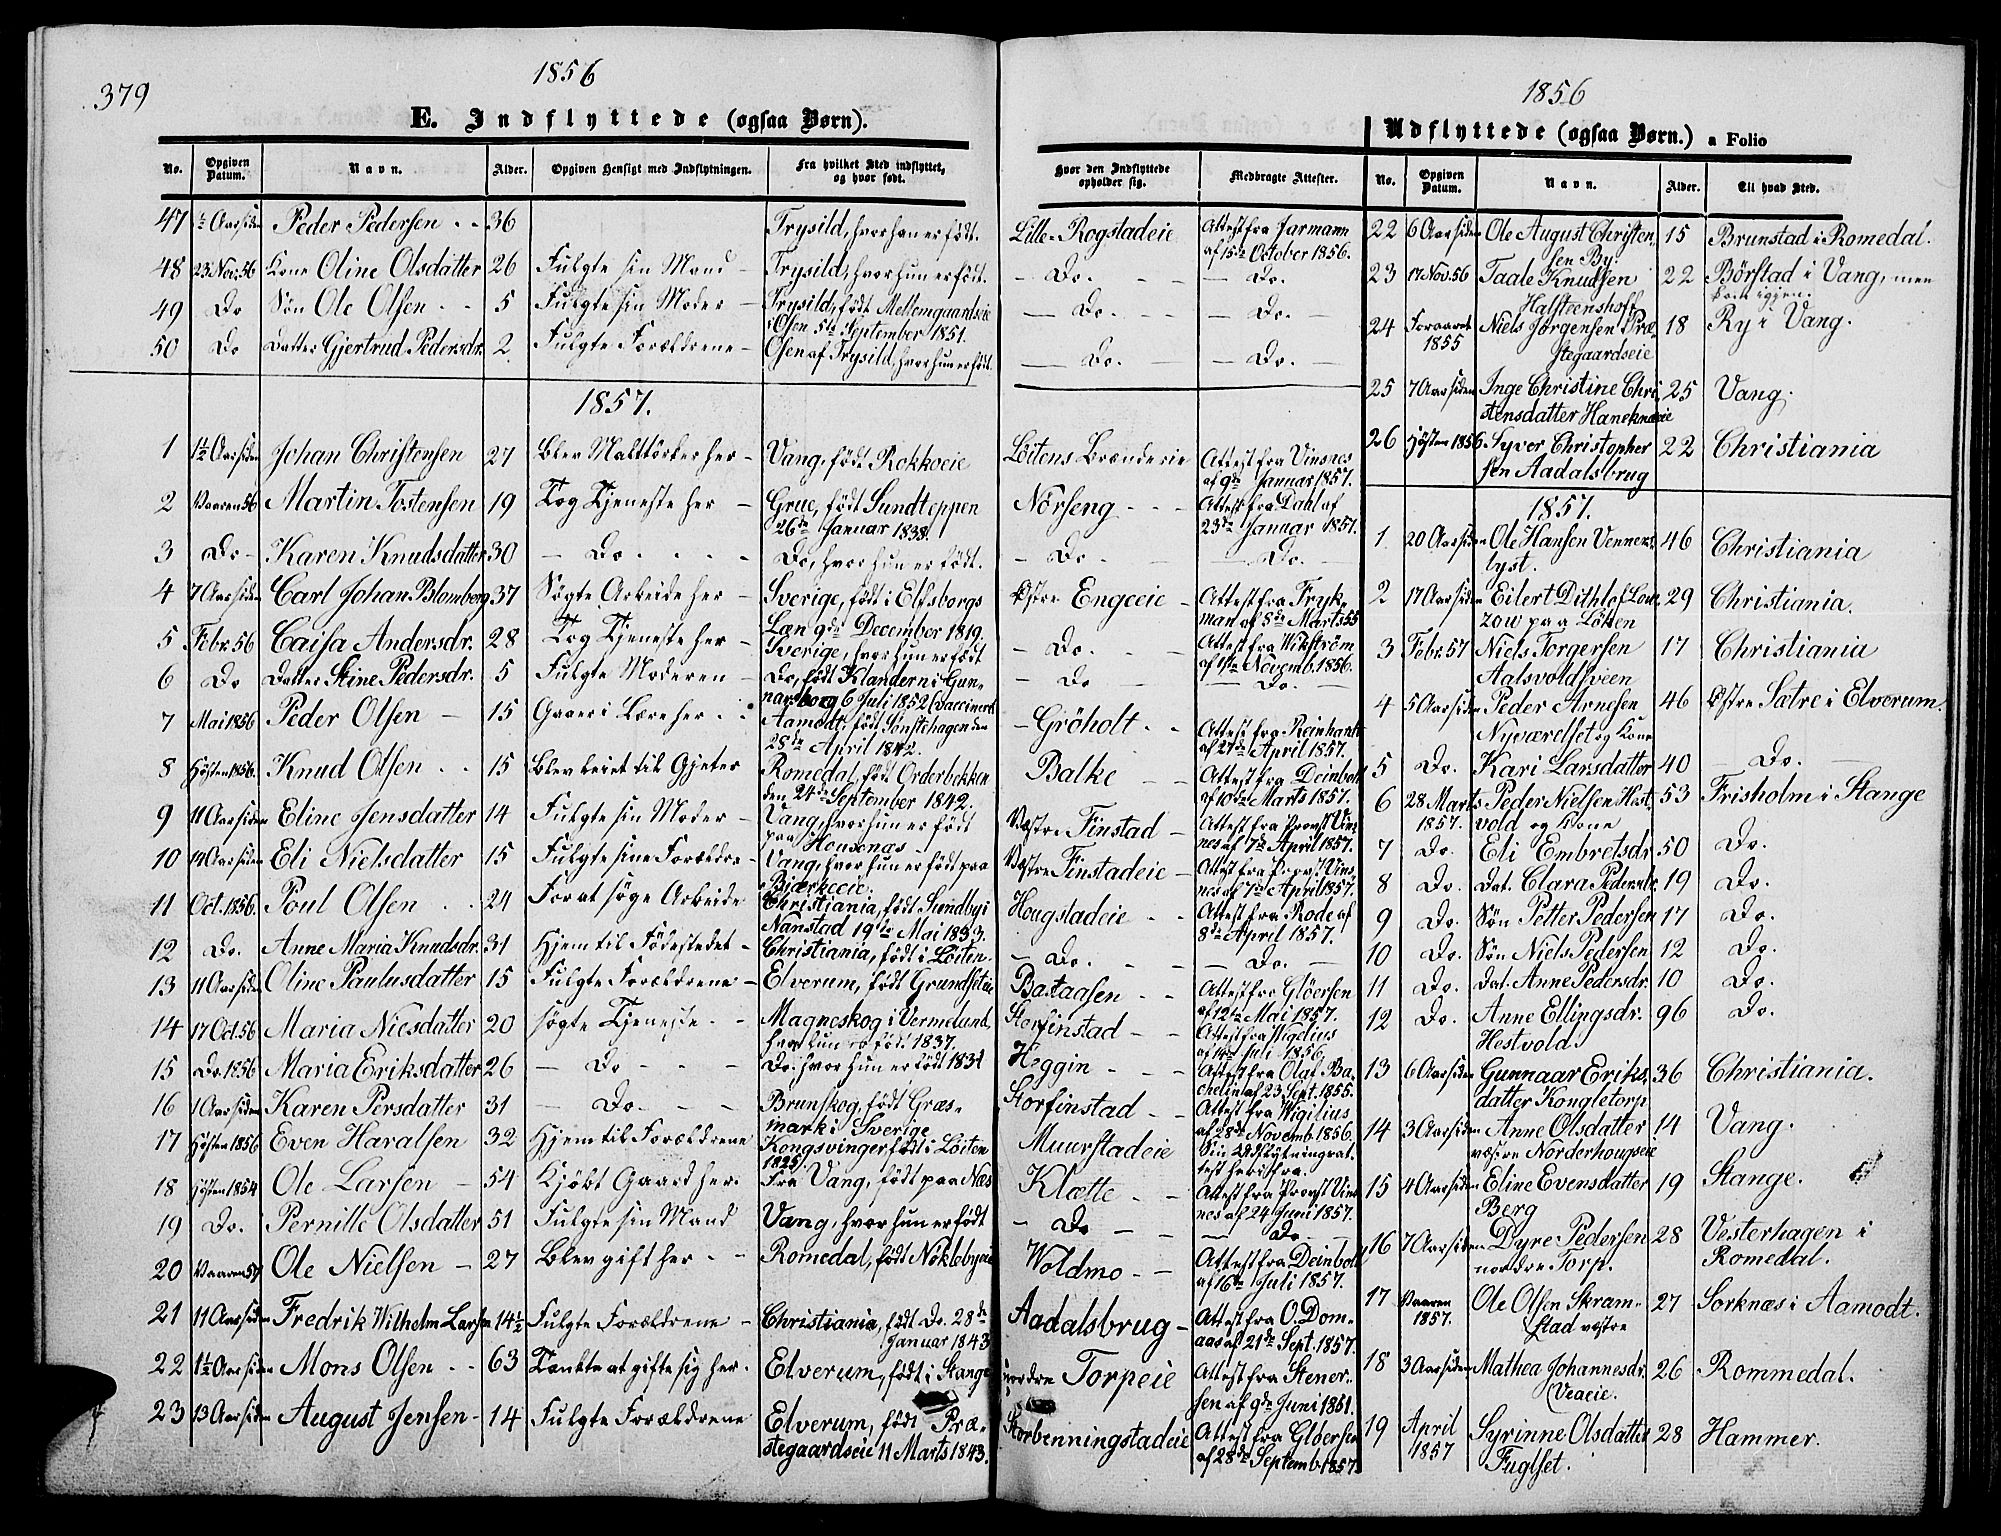 379
1856
E. Indflyttede (ogsaa Børn).
No. Opgiven Datum. Navn. Alder. Opgiven Hensigt med Indflytningen. Fra hvilket Sted indflyttet, og hvor født.
47 ½ Aar siden Peder Pedersen 36 Trysild, hvor han er født.
48 23 Nov. 56 Kone Oline Olsdatter 26 Fulgte sin Mand Trysild, hvor hun er født.
49 Do Søn Ole Olsen 5 Fulgte sin Moder Trysild, født Mellemgaardseie
i Osen 5te September 1851.
50 Do Datter Gjertrud Pedersdr. 2 Fulgte Forældrene Osen af Trysild, hvor hun er født.
1857.
1 1½ Aar siden Johan Christensen 27 Blev Malttørker her Vang, født Rokkoeie
2 Vaaren 56 Martin Tostensen 19 Tog Tjeneste her Grue, født Sundteppen
26de Januar 1838.
3 Do Karen Knudsdatter 30 Do Do, hvor hun er født.
4 7 Aar siden Carl Johan Blomberg 37 Søgte Arbeide her Sverige, født i Elfsborgs
Læn 9de December 1819.
5 Febr. 56 Caisa Andersdr. 28 Tog Tjeneste her Sverige, hvor hun er født
6 Do Datter Stine Pedersdr. 5 Fulgte Moderen Do, født Klandern i Gun-
narsborg 6 Juli 1852 (vaccineret
7 Mai 1856 Peder Olsen 15 Gaaer i Lære her Aamodt, født Sønstehagen den
28de April 1842.
8 Høsten 1856. Knud Olsen 15 Blev leiet til Gjeter Romedal, født Orderbekken
den 24de September 1842.
9 11 Aar siden Eline Jensdatter 14 Fulgte sin Moder Vang, hvor hun er født
paa Housenas
10 14 Aar siden Eli Nielsdatter 15 Fulgte sine Forældre Vang, hvor hun er født paa
Bjerkeeie.
11 Oct. 1856. Poul Olsen 24 For at søge Arbeide Christiania, født Sundby i
Nanstad 19de Mai 1833.
12 Do. Anne Maria Knudsdr. 31 Hjem til Fødestedet Christiania, født i Løiten.
13 11 Aar siden Oline Paulusdatter 15 Fulgte Forældrene Elverum, født Grundseteie
14 17 Oct. 56 Maria Niesdatter 20 søgte Tjeneste Magneskog i Vermelund,
hvor hun er født 1837.
15 Do 1856 Maria Eriksdatter 26 Do Do. hvor hun er født 1831
16 1 Aar siden Karen Persdatter 31 Do. Brunskog, født Græs-
mark i Sverige
17 Høsten 1856 Even Haralsen 32 Hjem til Forældrene Kongsvinger født i Løiten
1825.
18 Høsten 1854 Ole Larsen 54 Kjøbt Gaard her. Fra Vang, født paa Næs
19 Do. Pernille Olsdatter 51 Fulgte sin Mand Vang, hvor hun er født
20 Vaaren 57 Ole Nielsen 27 Blev gift her Romedal, født Nøklebyeie
21 11 Aar siden Fredrik Wilhelm Larsen 14½ Fulgte Forældrene Christiania, født Do. 28de
Januar 1843
22 1½ Aar siden Mons Olsen 63 Tænkte at gifte sig her. Elverum, født i Stange
23 13 Aar siden August Jensen 14 Fulgte Forældrene Elverum, født Præ-
stegaardseie 11 Marts 1843.
Hvor den Indflyttede opholder sig. Medbragte Attester.
Lille-Rogstadeie Attest fra Jarmann
af 15de October 1856.
Do. Do.
Do. Do.
Do. Do.
Løitens Brænderie Attest fra Vinsnes
af 9de Januar 1857.
Nörseng Attest fra Dahl af
23de Januar 1857.
Do Do.
Østre Engeeie Attest fra Fryk-
man af 8de Marts 55
Do. Attest fra Wikström
af 1ste Novemb. 1856.
Do Do.
Gröholt Attest fra Reinhardt
af 27de April 1857.
Balke Attest fra Deinboll
af 10de Marts 1857.
Vestre Finstad Attest fra Provst Vins-
nes af 7de April 1857.
Vestre Finstadeie Attest fra Provst Vins-
nes af 7de April 1857.
Hougstadeie Attest fra Rode af
8de April 1857.
Do. Do.
Bastaasen Attest fra Glöersen
af 12te Mai 1857.
Storfinstad Attest fra Vigelius
af 14de Juli 1856.
Heggin Attest fra Olaf Ba-
chelin af 23 Sept. 1855.
Storfinstad Attest fra Wigilius
af 28de Novemb. 1856.
Muurstadeie Sin Udflytningsat-
test herfra.
Klætte Attest fra Provst Vins-
nes af 24 Juni 1857.
Do Do
Woldmo Attest fra Deinboll
af 16de Juli 1857.
Aadalsbrug Attest fra O. Dom-
aas af 21de Sept. 1857.
nordre Torpeie Attest fra Stener-
sen af 9de Juni 1861.
Storbenningstadeie Attest fra Glöersen
af 28de Septemb. 1857.
1856
Udflyttede (ogsaa Børn.) a Folio
No. Opgiven Datum. Navn. Alder. Til hvad Sted.
22 6 Aar siden Ole August Christen- 15 Brunstad i Romedal.
sen By
23 17 Nov. 56 Taale Knudsen 22 Börstad i Vang, men
Halstenshof kom iggen.
24 Foraaret Niels Jörgensen Præ- 18 Ry i Vang.
1855 stegaardseie
25 7 Aar siden Inge Christine Chri- 25 Vang.
stensdatter Haneknæeie
26 Høsten 1856. Syver Christopher- 22 Christiania
sen Aadalsbrug
1857.
1 20 Aar siden Ole Hansen Venners- 46 Christiania
lyst.
2 17 Aar siden Eilert Dithlof Low- 29 Christiania.
zow paa Löken
3 Febr. 57 Niels Torgersen 17 Christiania
Aalsvoldsveen
4 5 Aar siden Peder Arnesen 46 Østre Sætre i Elverum.
Nyværelset og Kone
5 Do. Kari Larsdatter 40 Do.
6 28 Marts Peder Nielsen Hest- 53 Frisholm i Stange
1857. vold og Kone
7 Do. Eli Embretsdr. 50 Do.
8 Do. Dat. Clara Pedersdr. 19 Do.
9 Do. Søn Petter Pedersen 17 Do.
10 Do. Søn Niels Pedersen 12 Do.
11 Do. Dat. Anne Pedersdr. 10 Do.
12 Do. Anne Ellingsdr. 96 Do.
Hestvold
13 6 Aar siden Gunnaar Eriks- 36 Christiania.
datter Kongletorp
14 3 Aar siden Anne Olsdatter 14 Vang.
vestre Norderhougseie
15 4 Aar siden Eline Evensdatter 19 Stange.
Berg
16 7 Aar siden Dyre Pedersen 28 Vesterhagen i
nordre Torp. Romedal.
17 Vaaren Ole Olsen Skram- 27 Sorknæs i Aamodt.
1857. stad vestre
18 3 Aar siden Mathea Johannesdr. 26 Rommedal.
Veaeie.
19 April Syrinne Olsdatter 28 Hammer.
1857 Fuglset.